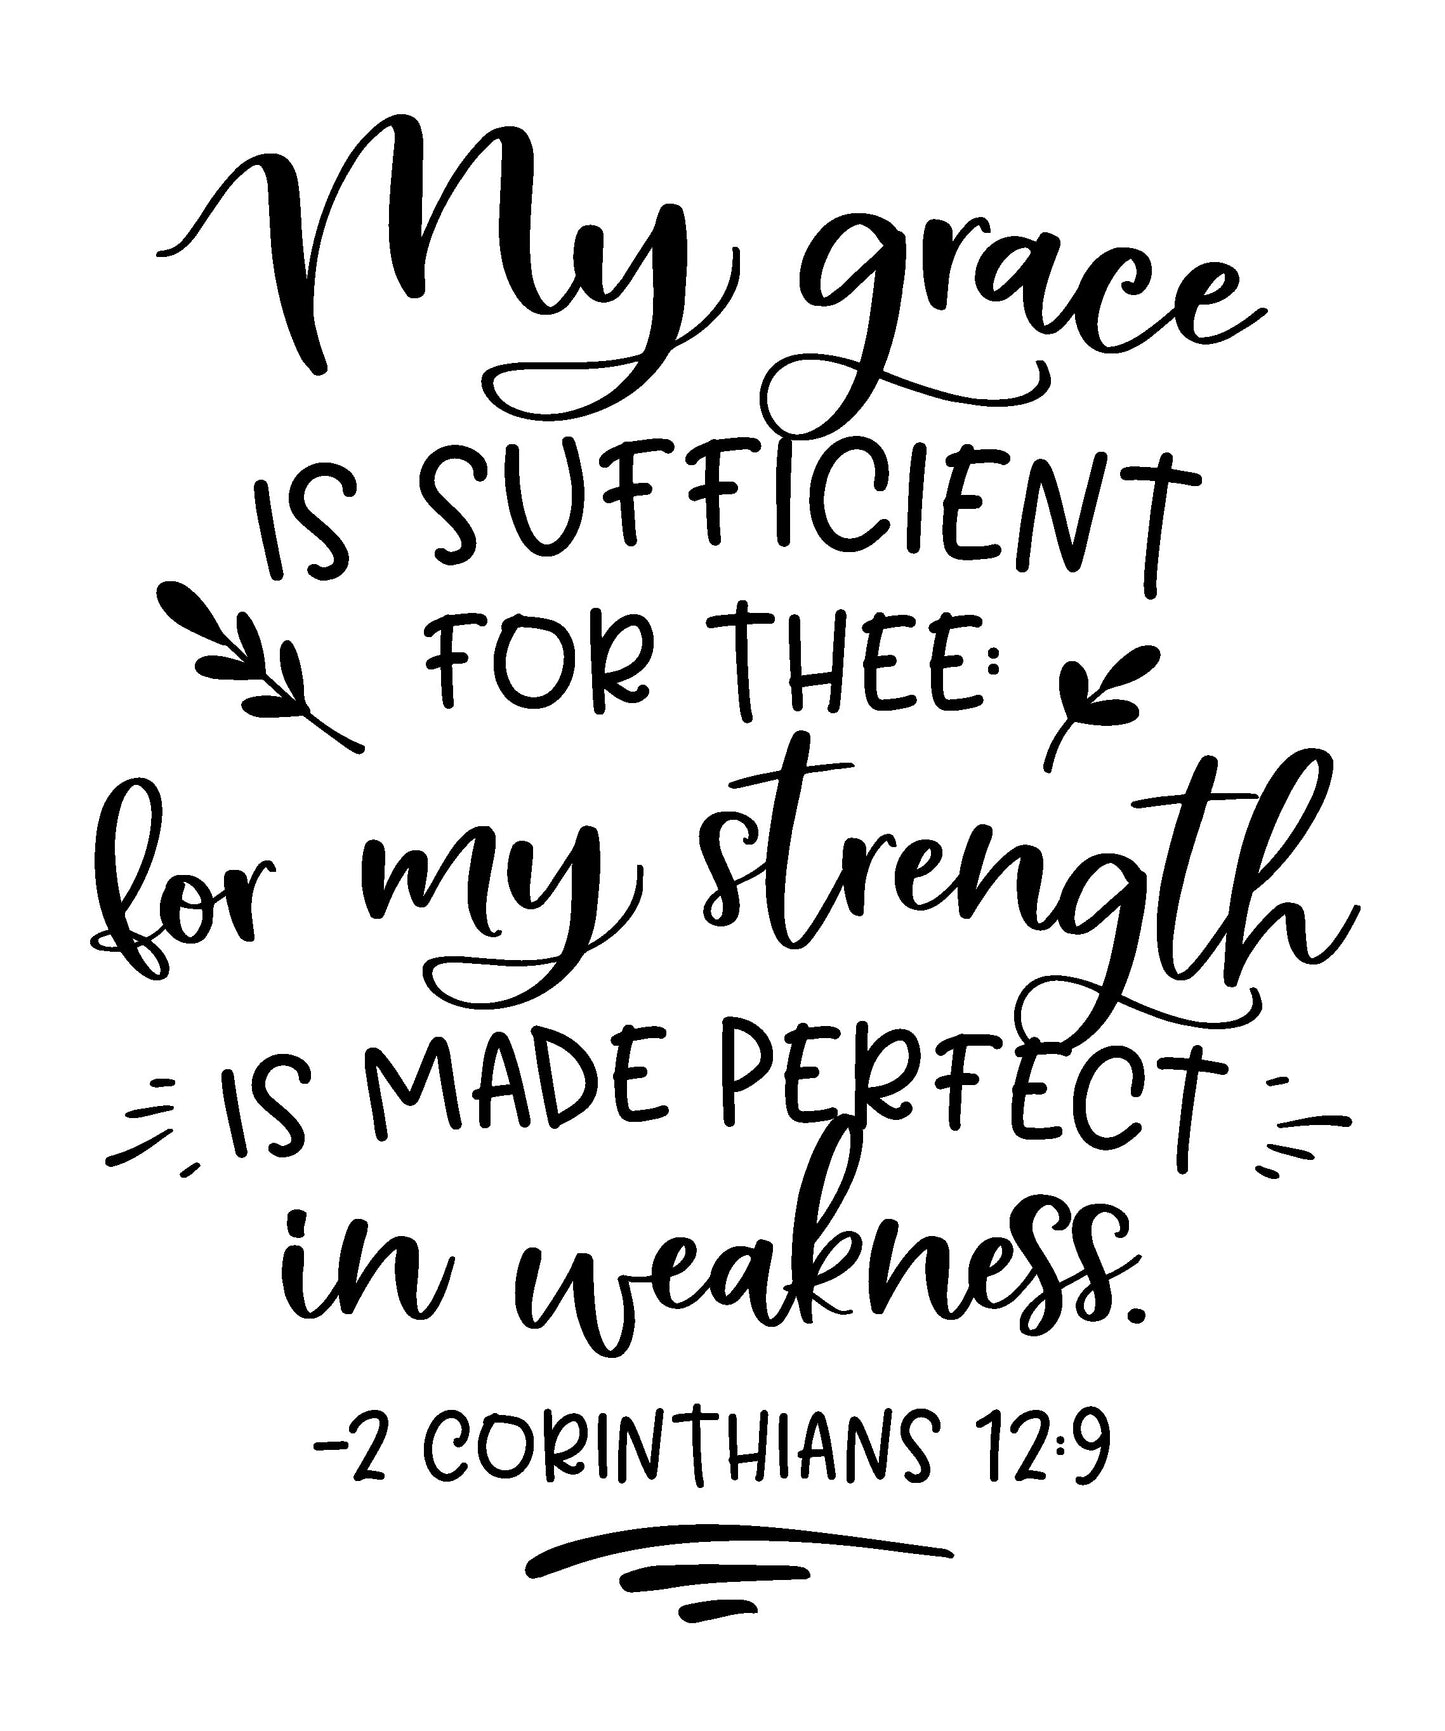 My grace
IS SUFFICIENT
FOR THEE:
for my strength
IS MADE PERFECT
in weakness.
-2 CORINTHIANS 12:9